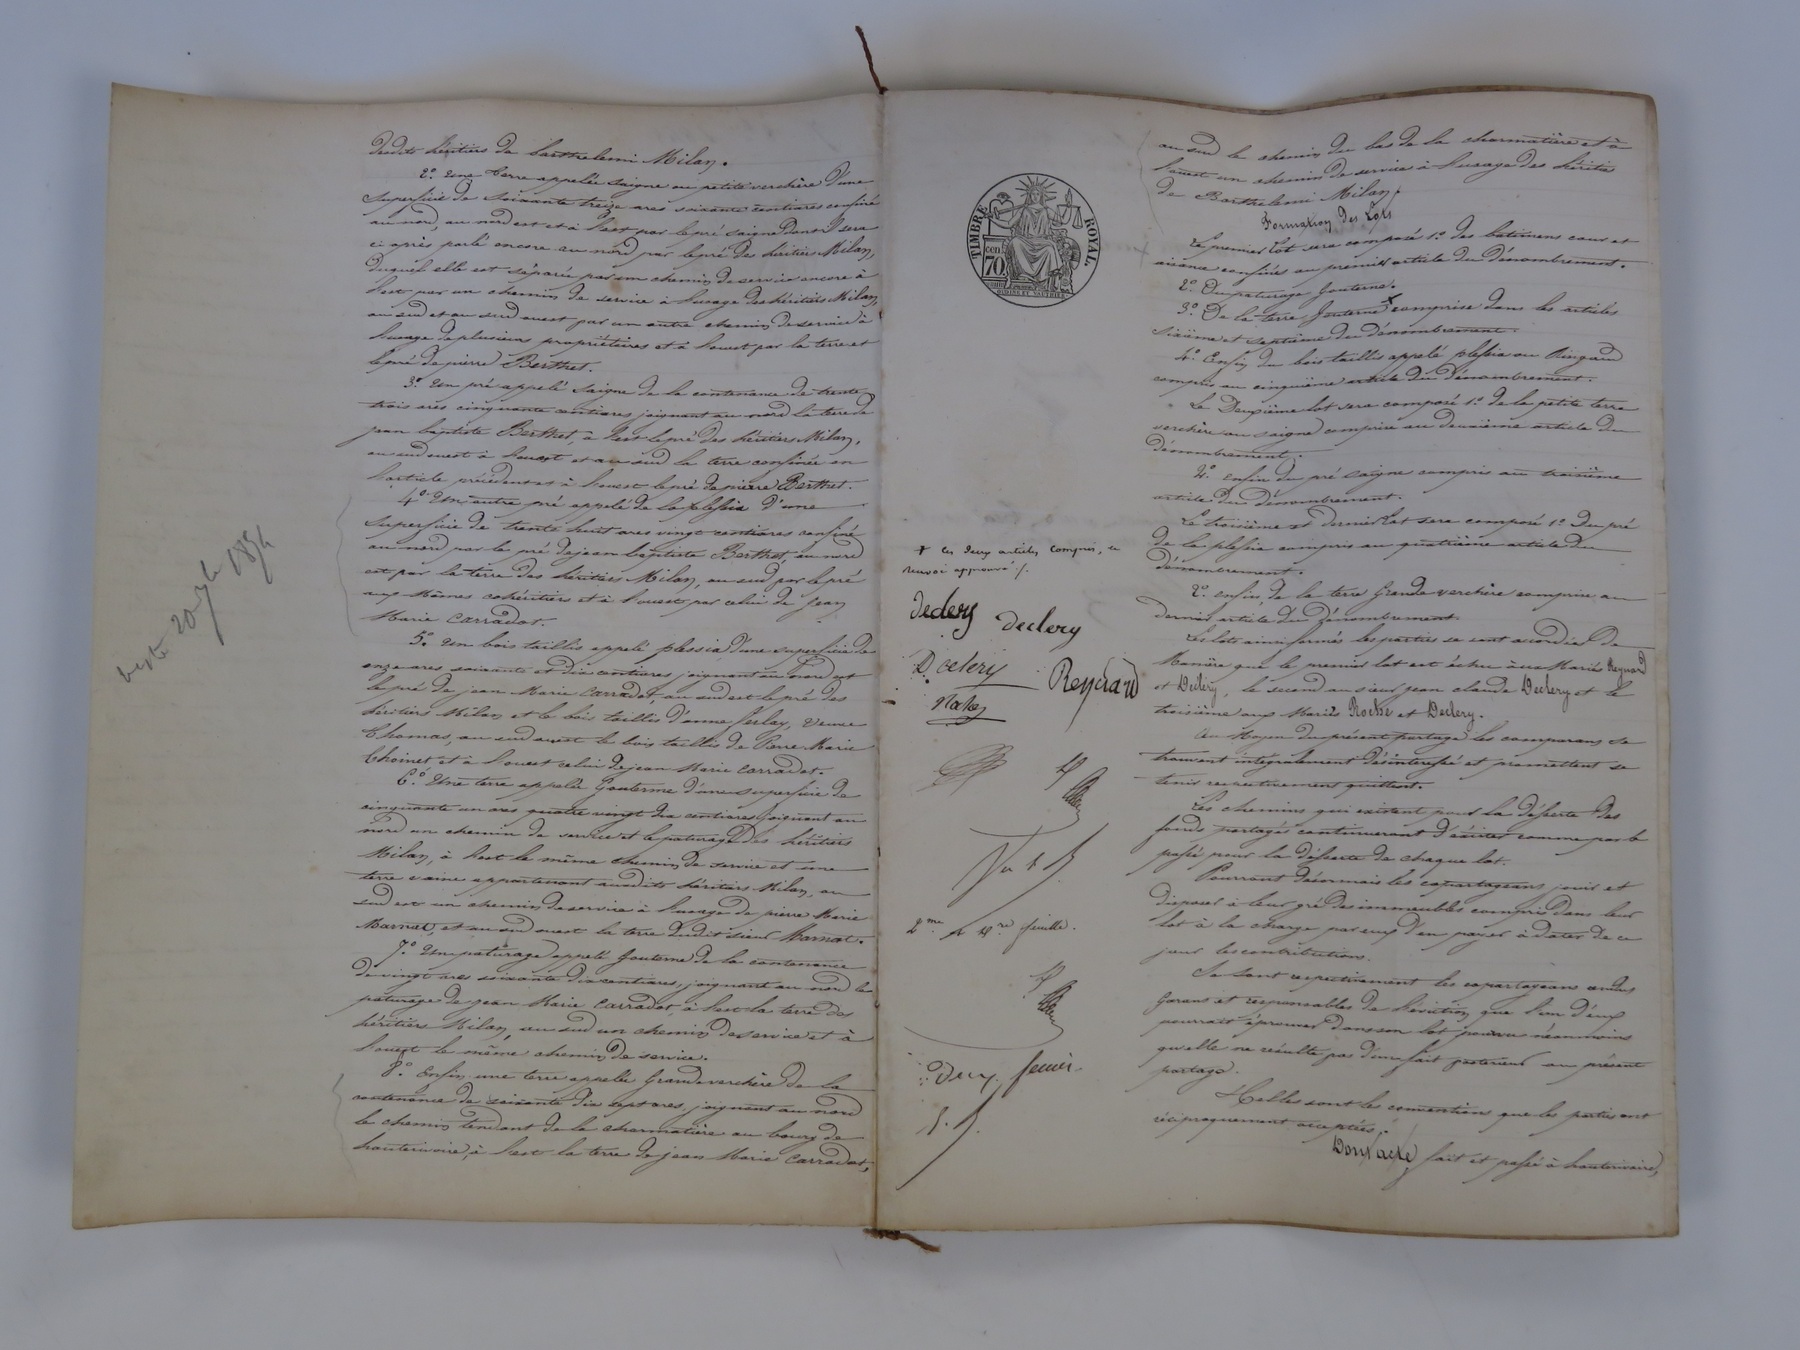 desdits héritiers de barthelemi Milan.
2.° Une terre appelée Saigne ou petite verchère d'une
superficie de Soixante treize ares soixante centiares confiné
au nord, au nord est et à l'est par le pré Saigne dont il sera
ci après parlé encore au nord par le pré des héritiers Milan,
duquel elle est séparée par un chemin de service encore à
l'est par un chemin de service à l'usage des héritiers Milan,
au sud et au sud ouest par un autre chemin de service à
l'usage de plusieurs propriétaires et à l'ouest par la terre et
le pré de pierre Berthet.
3.° Un pré appelé Saigne de la contenance de trente
trois ares cinquante centiares joignant au nord la terre de
jean baptiste Berthet, à l'est le pré des héritiers Milan,
au sud ouest à l'ouest et au sud la terre confinée en
l'article précédent et à l'ouest le pré de pierre Berthet.
4.° Un autre pré appelé de la plessia d'une
superficie de trente huit ares vingt centiares confiné
au nord par le pré de jean baptiste Berthet, au nord
est par la terre des héritiers Milan, au sud par le pré
aux mêmes cohéritiers et à l'ouest par celui de jean
Marie Carradot.
5.° Un bois taillis appelé plessia, d'une superficie de
onze ares soixante et dix centiares joignant au nord est
le pré de jean Marie Carradot, au sud est le pré des
héritiers Milan et le bois taillis d'anne veuve
Thomas, au sud ouest le bois taillis de Pierre Marie
Choinet et à l'ouest celui de jean Marie Carradot.
6.° Une terre appelée Gouterne d'une superficie de
cinquante un ares quatre vingt dix centiares joignant au
nord un chemin de service et le paturage des héritiers
Milan, à l'est le même chemin de service et une
terre vaine appartenant auxdits héritiers Milan, au
sud est un chemin de service à l'usage de pierre Marie
Marnat, et au sud ouest la terre dudit sieur Marnat.
7.° Un paturage appelé Gouterne de la contenance
de vingt ares soixante dix centiares, joignant au nord le
paturage de jean Marie Carradot, à l'est la terre des
héritiers Milan, au sud un chemin de service et à
l'ouest le même chemin de service.
8.° Enfin une terre appelée Grande verchère de la
contenance de soixante dix sept ares, joignant au nord
le chemin tendant de la charmatière au bourg de
hauterivoire, à l'est la terre de jean Marie Carradot,
1854
TIMBRE ROYAL
70
au sud le chemin du bas de la charmatière et à
l'ouest un chemin de service à l'usage des héritiers
de Barthelemi Milan.
Formation des Lots
Le premier Lot sera composé 1.° des batimens cour et
aisance confinés au premier article du Dénombrement.
2.° Du paturage Gouterne.
3.° De la terre Gouterne + comprise dans les articles
sixième et septième du dénombrement.
4.° Enfin du bois taillis appelé plessia ou Ringaud
compris au cinquième article du Dénombrement.
Le Deuxième lot sera composé 1.° de la petite terre
verchère ou saigne comprise au deuxième article du
Dénombrement.
2.° enfin du pré saigne compris au troisième
article du dénombrement.
Le troisième et dernier Lot sera composé 1.° Du pré
de la plessia compris au quatrième article du
dénombrement.
2.° enfin, de la terre Grande verchère comprise au
dernier article du Dénombrement.
Les lots ainsi formés les parties se sont accordées de
Manière que le premier lot est échu aux Mariés Reynard
et Declery, le second au sieur jean claude Declery et le
troisième aux Mariés Roche et Declery.
Au Moyen du présent partage les comparans se
trouvent intégralement désintéressés et promettent se
tenir respectivement quittes.
Les chemins qui existent pour la déserte des
fonds partagés continueront d'exister comme par le
passé pour la déserte de chaque lot.
Pourront désormais les copartageans jouir et
disposer à leur gré des immeubles compris dans leur
lot à la charge par eux d'en payer à dater de ce
jour les contributions.
Se sont respectivement les copartageans rendus
garans et responsables de l'éviction que l'un d'eux
pourrait éprouver dans son lot pourvu néanmoins
qu'elle ne résulte pas d'un fait postérieur au présent
partage.
Telles sont les conventions que les parties ont
réciproquement acceptées.
Dont acte, fait et passé à hauterivoire,
+ les deux articles compris, ce
renvoi approuvé ./.
Declery Declery
Declery Reynard
Roche
2.me feuille.